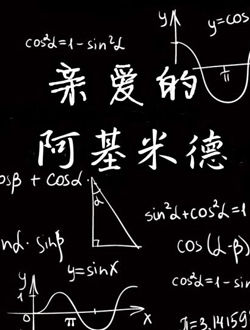 y
y=cos
cos²α=1-sin²α
π
亲爱的
阿基米德
osβ + cosα.
α
sin²α+cos²α=1
nα·sinβ
cos(α-β)
y=sinx
cos²α=1-sin
y
1
0
π
x
π=3,14159